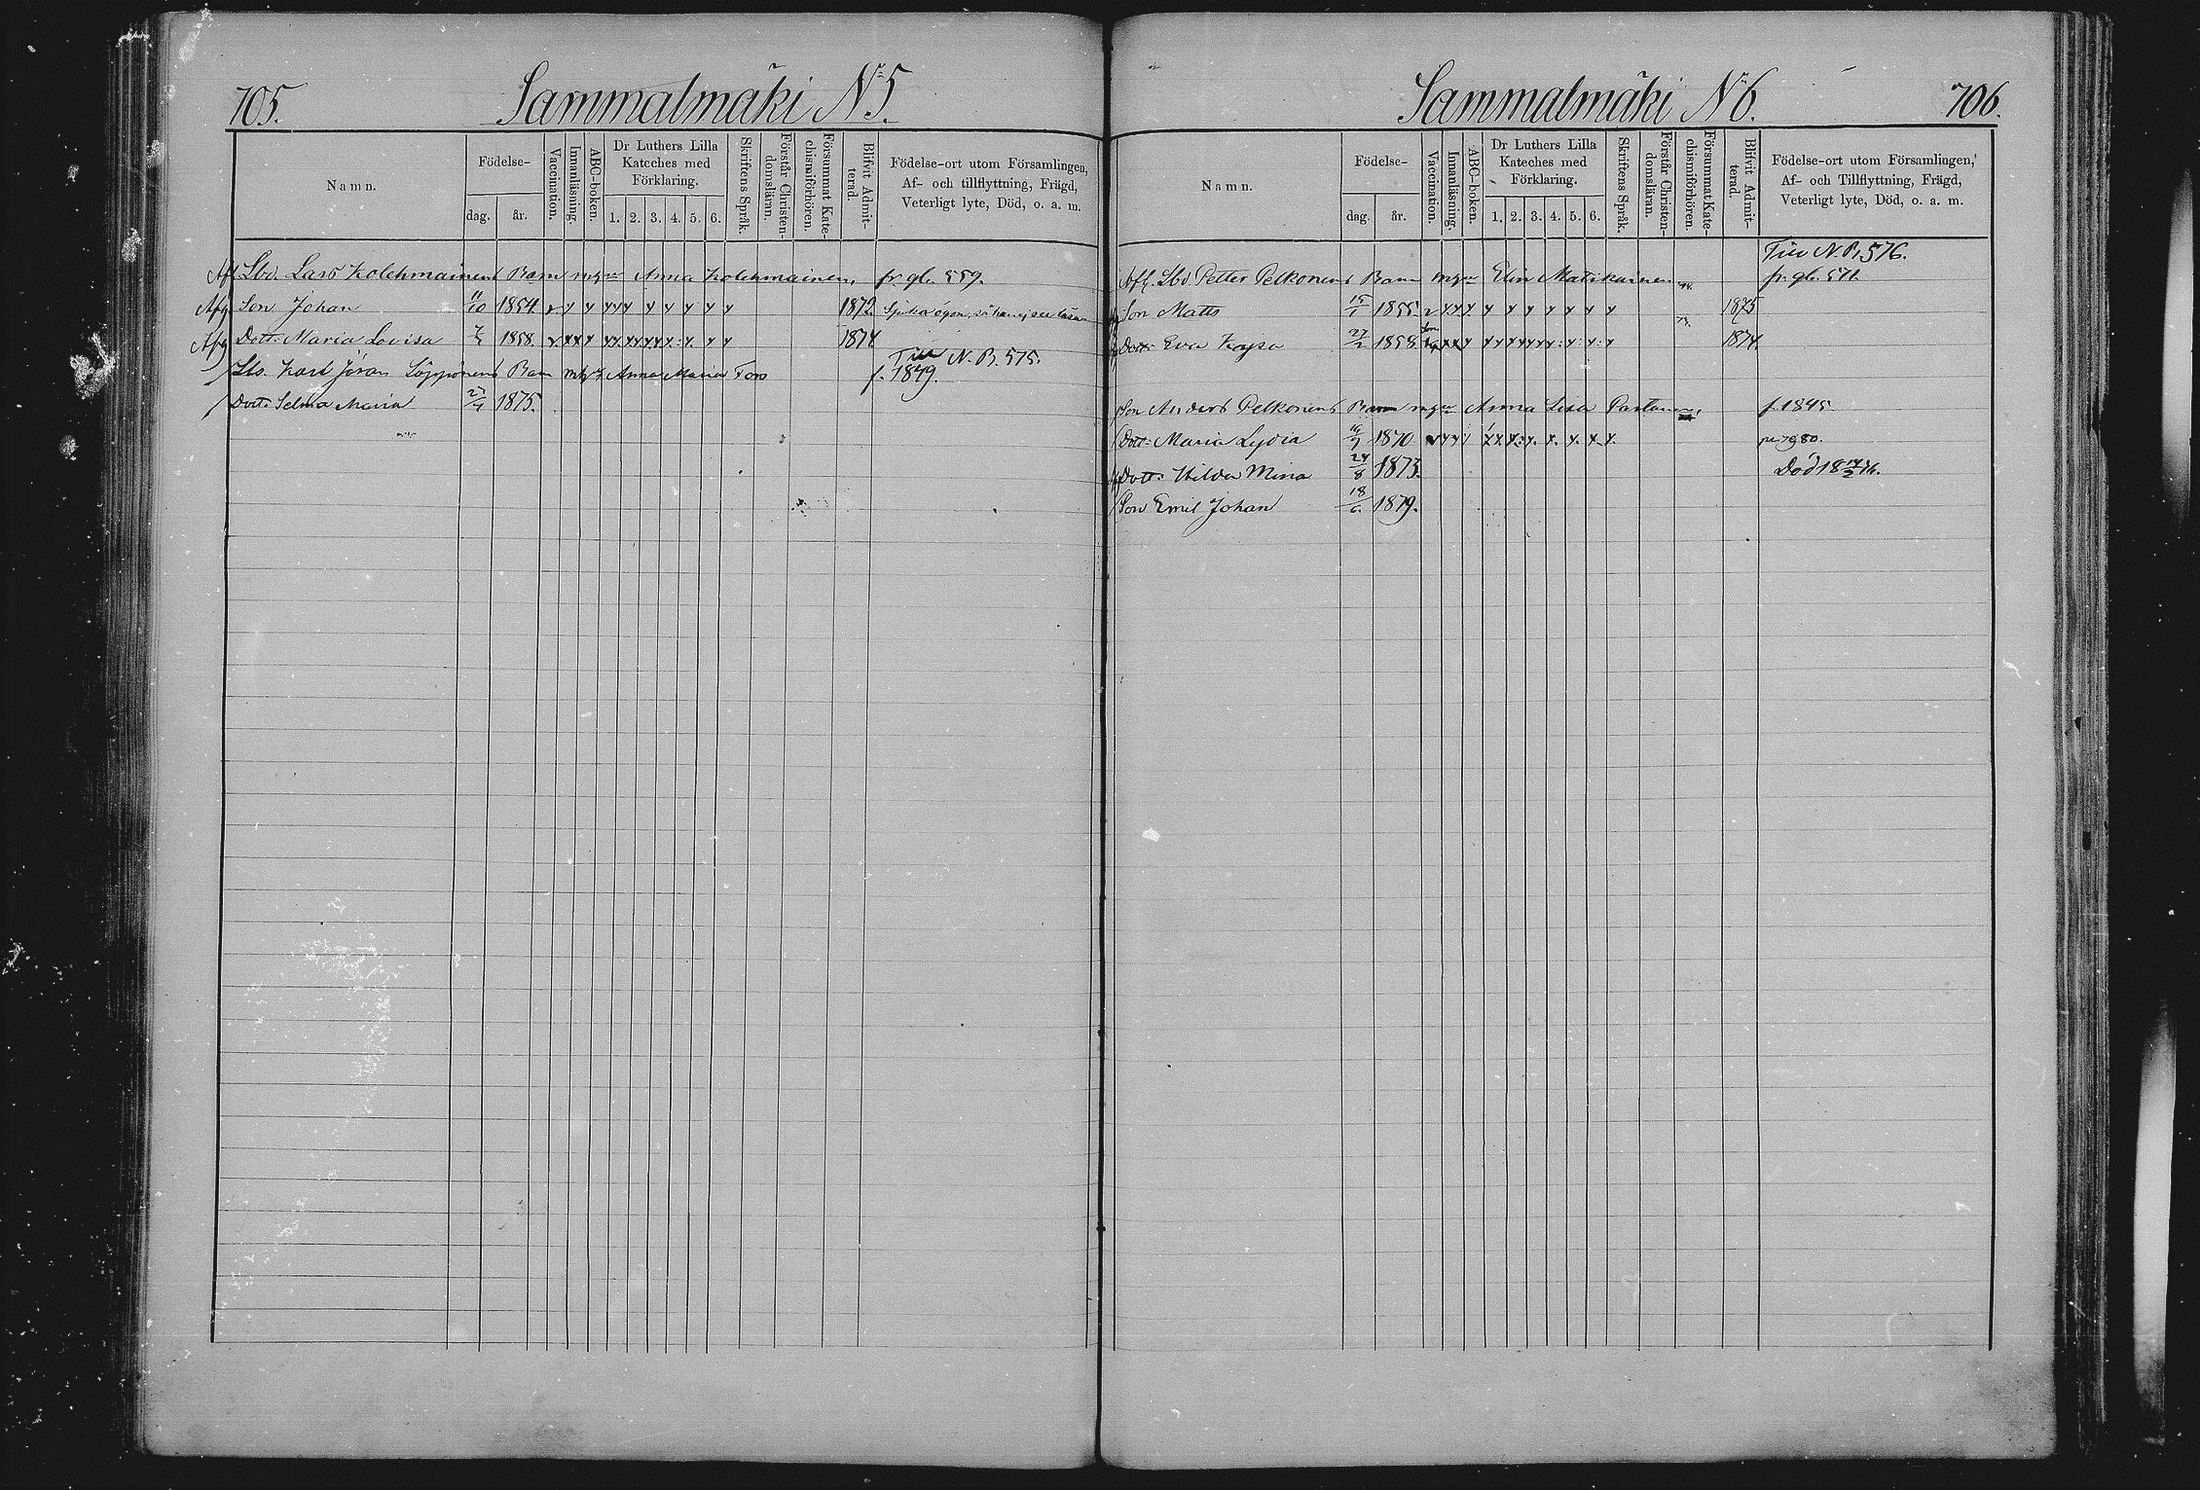 705. Sammalmäki N:5.
Namn.
Födelse-
dag. år.
Vaccination.
Innanläsning.
ABC-boken.
Dr Luthers Lilla
Kateches med
Förklaring.
1. 2. 3. 4. 5. 6.
Skriftens Språk.
Förstår Christen-
domsläran.
Försummat Kate-
chismiförhören.
Blifvit Admit-
terad.
Födelse-ort utom Församlingen,
Af- och tillflyttning, Frägd,
Veterligt lyte, Död, o. a. m.
Lbd. Lars Kolehmainens Barn Anna Kolehmainen, fr. gla 559.
Afg Son Johan 11/10 1854 v x x x x x x x x x x 1872.
Afg Dott. Maria Lovisa 1858. 1874
Till N. B. 575.
Karl Jöran Barn Anna Maria Fors f. 1849.
Dott. Selma Maria 1875.
Sammalmäki N:6. 706.
Namn.
Födelse-
dag. år.
Vaccination.
Innanläsning.
ABC-boken.
Dr Luthers Lilla
Kateches med
Förklaring.
1. 2. 3. 4. 5. 6.
Skriftens Språk.
Förstår Christen-
domsläran.
Försummat Kate-
chismiförhören.
Blifvit Admit-
terad.
Födelse-ort utom Församlingen,
Af- och Tillflyttning, Frägd,
Veterligt lyte, Död, o. a. m.
Till N. B. 576.
Afg. Lbd Petter Pelkonens Barn Elin Matikainen fr. gla 571.
Son Matts 15/1 1855 1875
Dott. Eva Kajsa 1858 1874
Son Anders Pelkonens Barn Anna Lisa Partanen, f. 1845.
Dott. Maria Lydia 1870
Dott. Hilda Mina 24/8 1873. Död
Son Emil Johan 18/6 1879.